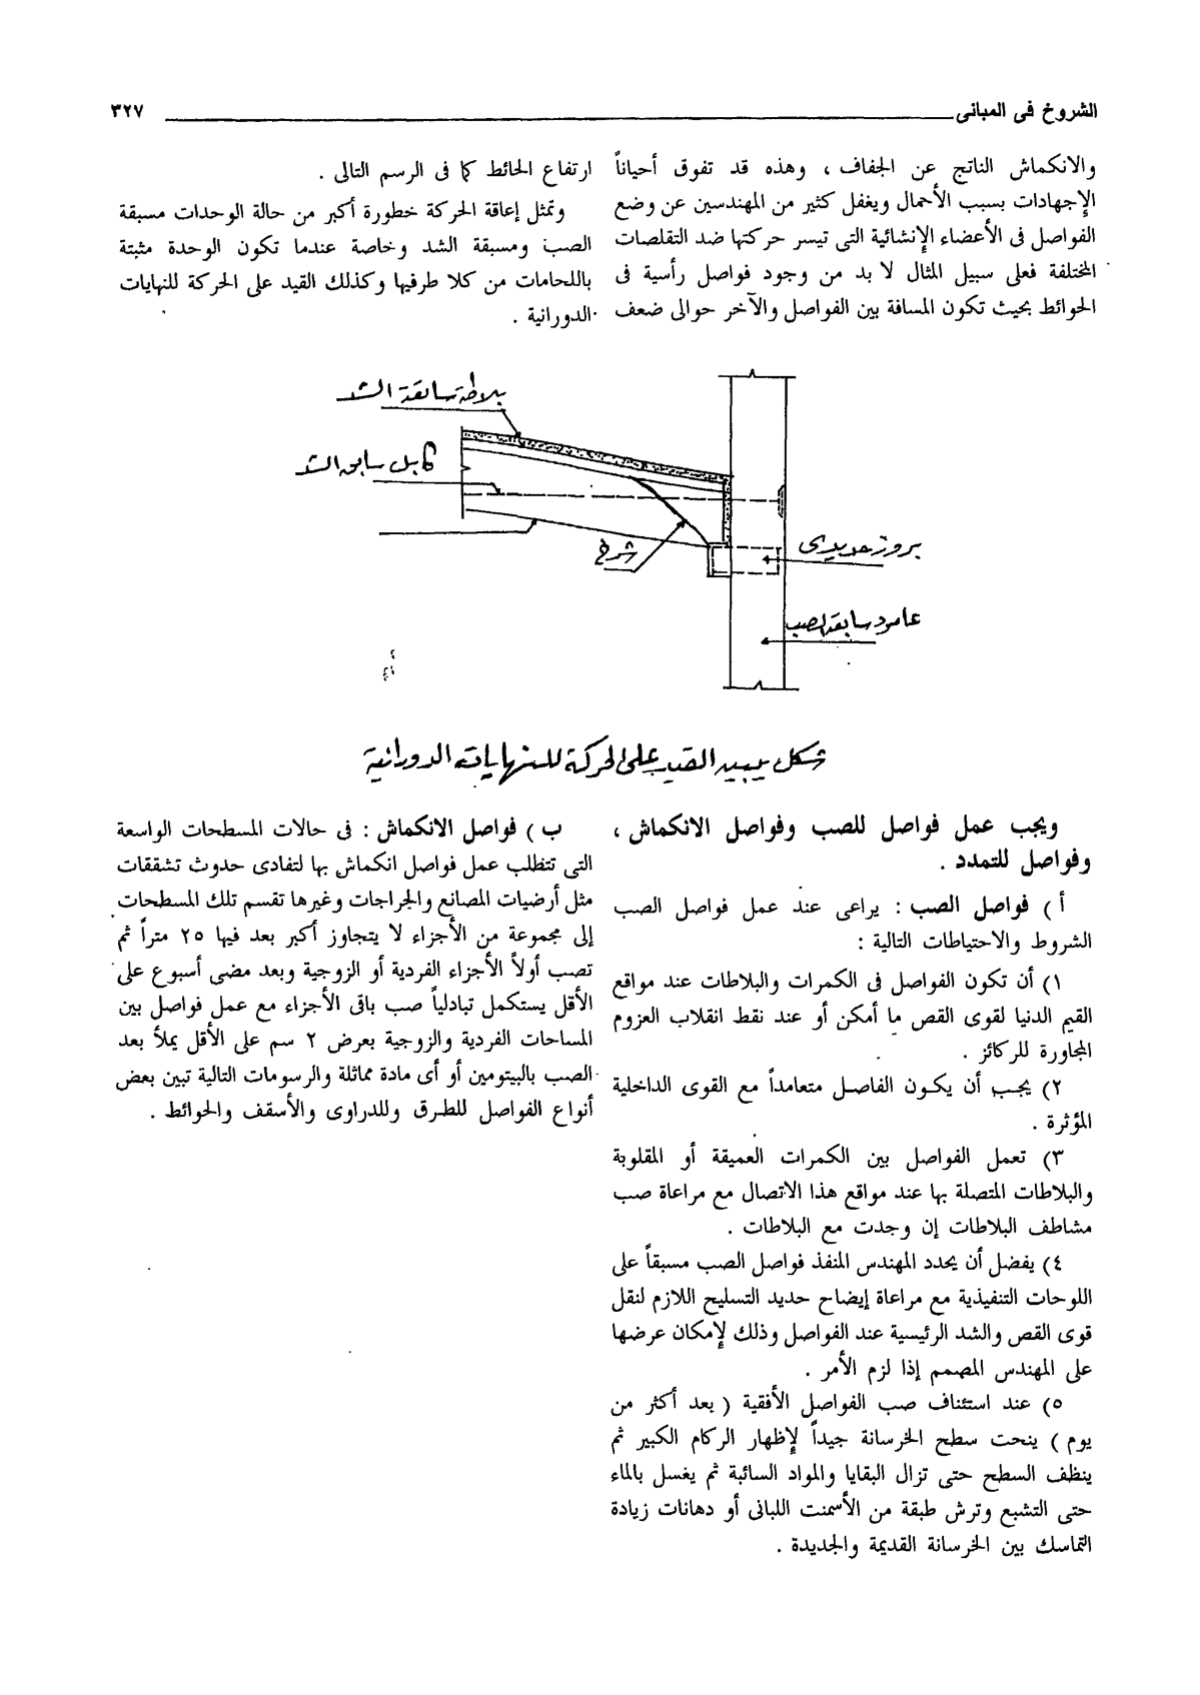 الشروخ فى المبانى ٣٢٧
والانكماش الناتج عن الجفاف ، وهذه قد تفوق أحياناً
الإجهادات بسبب الأحمال ويغفل كثير من المهندسين عن وضع
الفواصل فى الأعضاء الإنشائية التى تيسر حركتها ضد التقلصات
المختلفة فعلى سبيل المثال لا بد من وجود فواصل رأسية فى
الحوائط بحيث تكون المسافة بين الفواصل والآخر حوالى ضعف
ارتفاع الحائط كما فى الرسم التالى .
وتمثل إعاقة الحركة خطورة أكبر من حالة الوحدات مسبقة
الصب ومسبقة الشد وخاصة عندما تكون الوحدة مثبتة
باللحامات من كلا طرفيها وكذلك القيد على الحركة للنهايات
الدورانية .
بلاطة سابقة الشد
كابل سابق الشد
شرخ
بروز حديدى
عامود سابقة الصب
شكل يبين القيد على الحركة للنهايات الدورانية
ويجب عمل فواصل للصب وفواصل الانكماش ،
وفواصل للتمدد .
أ ) فواصل الصب : يراعى عند عمل فواصل الصب
الشروط والاحتياطات التالية :
١) أن تكون الفواصل فى الكمرات والبلاطات عند مواقع
القيم الدنيا لقوى القص ما أمكن أو عند نقط انقلاب العزوم
المجاورة للركائز .
٢) يجب أن يكون الفاصل متعامداً مع القوى الداخلية
المؤثرة .
٣) تعمل الفواصل بين الكمرات العميقة أو المقلوبة
والبلاطات المتصلة بها عند مواقع هذا الاتصال مع مراعاة صب
مشاطف البلاطات إن وجدت مع البلاطات .
٤) يفضل أن يحدد المهندس المنفذ فواصل الصب مسبقاً على
اللوحات التنفيذية مع مراعاة إيضاح حديد التسليح اللازم لنقل
قوى القص والشد الرئيسية عند الفواصل وذلك لإمكان عرضها
على المهندس المصمم إذا لزم الأمر .
٥) عند استئناف صب الفواصل الأفقية ( بعد أكثر من
يوم ) ينحت سطح الخرسانة جيداً لإظهار الركام الكبير ثم
ينظف السطح حتى تزال البقايا والمواد السائبة ثم يغسل بالماء
حتى التشبع وترش طبقة من الأسمنت اللبانى أو دهانات زيادة
التماسك بين الخرسانة القديمة والجديدة .
ب ) فواصل الانكماش : فى حالات المسطحات الواسعة
التى تتطلب عمل فواصل انكماش بها لتفادى حدوث تشققات
مثل أرضيات المصانع والجراجات وغيرها تقسم تلك المسطحات
إلى مجموعة من الأجزاء لا يتجاوز أكبر بعد فيها ٢٥ متراً ثم
تصب أولاً الأجزاء الفردية أو الزوجية وبعد مضى أسبوع على
الأقل يستكمل تبادلياً صب باقى الأجزاء مع عمل فواصل بين
المساحات الفردية والزوجية بعرض ٢ سم على الأقل يملأ بعد
الصب بالبيتومين أو أى مادة مماثلة والرسومات التالية تبين بعض
أنواع الفواصل للطرق وللدراوى والأسقف والحوائط .